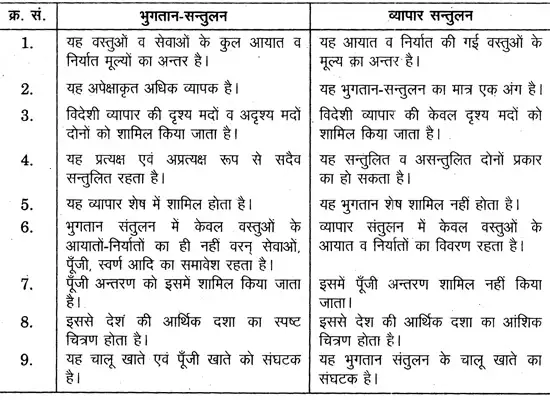 क्र. सं. भुगतान-सन्तुलन व्यापार सन्तुलन
1. यह वस्तुओं व सेवाओं के कुल आयात व यह आयात व निर्यात की गई वस्तुओं के
निर्यात मूल्यों का अन्तर है। मूल्य का अन्तर है।
2. यह अपेक्षाकृत अधिक व्यापक है। यह भुगतान-सन्तुलन का मात्र एक अंग है।
3. विदेशी व्यापार की दृश्य मदों व अदृश्य मदों विदेशी व्यापार की केवल दृश्य मदों को
दोनों को शामिल किया जाता है। शामिल किया जाता है।
4. यह प्रत्यक्ष एवं अप्रत्यक्ष रूप से सदैव यह सन्तुलित व असन्तुलित दोनों प्रकार
सन्तुलित रहता है। का हो सकता है।
5. यह व्यापार शेष में शामिल होता है। यह भुगतान शेष शामिल नहीं होता है।
6. भुगतान संतुलन में केवल वस्तुओं के व्यापार संतुलन में केवल वस्तुओं के
आयातों-निर्यातों का ही नहीं वरन् सेवाओं, आयात व निर्यातों का विवरण रहता है।
पूँजी, स्वर्ण आदि का समावेश रहता है।
7. पूँजी अन्तरण को इसमें शामिल किया जाता इसमें पूँजी अन्तरण शामिल नहीं किया
है। जाता।
8. इससे देश की आर्थिक दशा का स्पष्ट इससे देश की आर्थिक दशा का आंशिक
चित्रण होता है। चित्रण होता है।
9. यह चालू खाते एवं पूँजी खाते को संघटक यह भुगतान संतुलन के चालू खाते का
है। संघटक है।